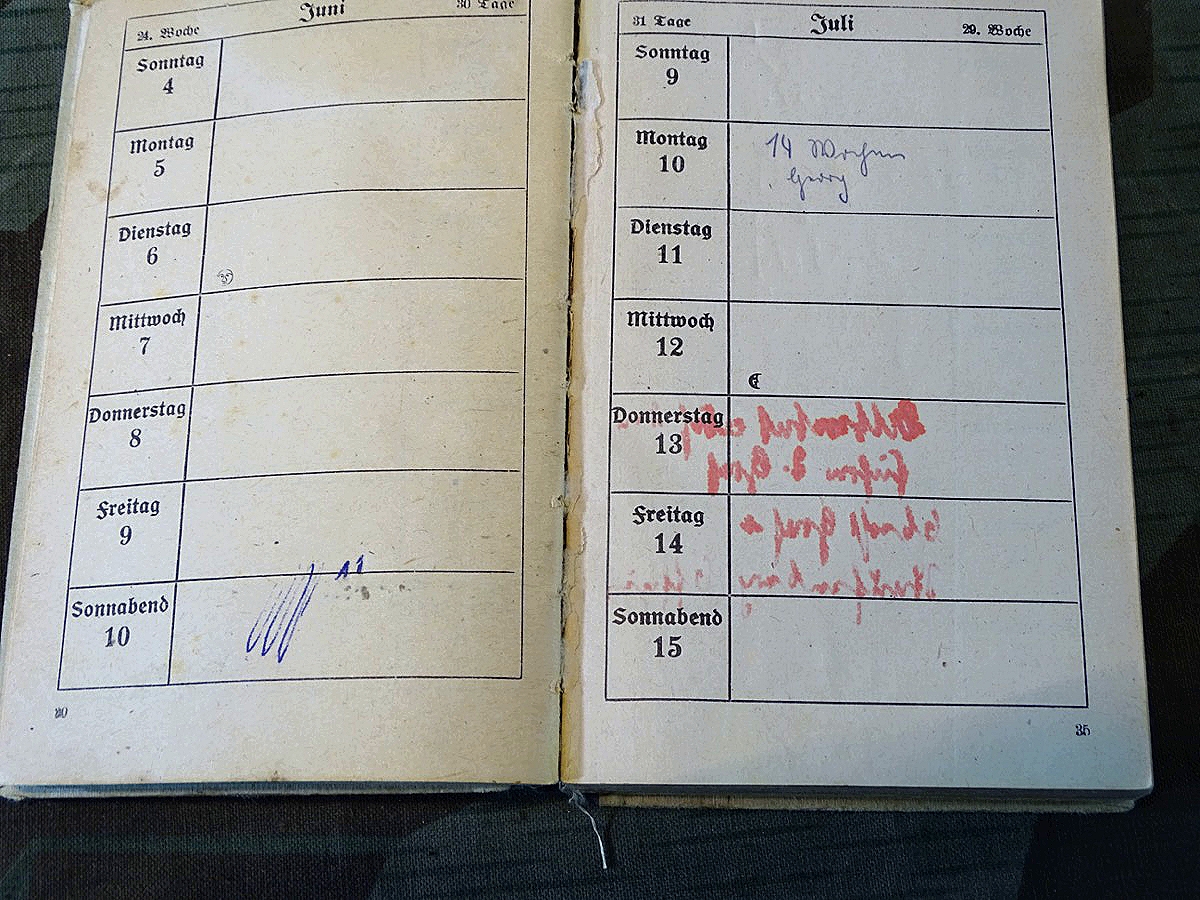 Juni
30 Tage
24. Woche
Sonntag
4
Montag
5
Dienstag
6
Mittwoch
7
Donnerstag
8
Freitag
9
Sonnabend
10
11
31 Tage
Juli
29. Woche
Sonntag
9
Montag
10
14 Wochen
Georg
Dienstag
11
Mittwoch
12
Donnerstag
13
Freitag
14
Sonnabend
15
35